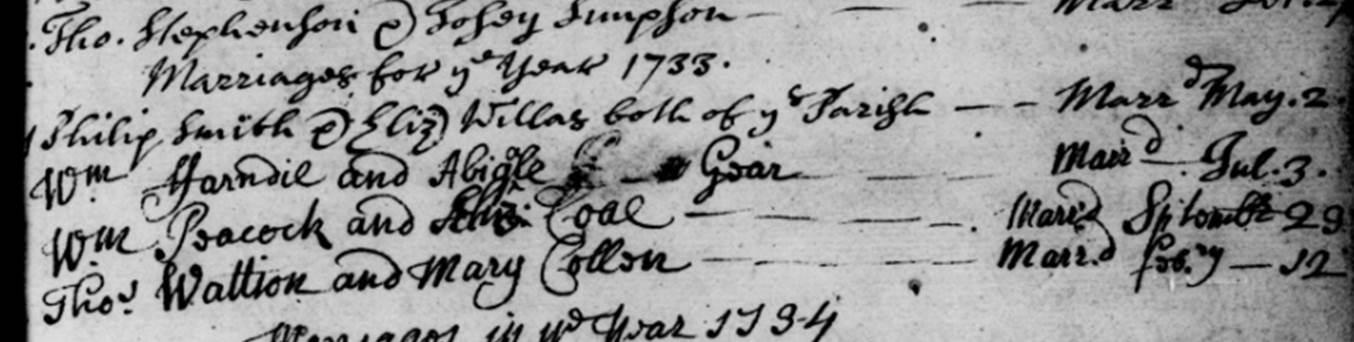 Tho. Stephenson & Tosey Simpson — — — Marr
Marriages for yᵉ Year 1733.
Philip Smith & Eliz Willas both of yˢ Parish — — Marrᵈ May. 2
Wᵐ Harndil and Abigle Gear — — Marrᵈ — Jul. 3.
Wᵐ Peacock and Coal — — — — Marrᵈ Sptombr 29
Thoˢ Wattion and Mary Collen — — — — Marr.ᵈ feb.ʳʸ — 12
Marriages in yᵉ Year 1734